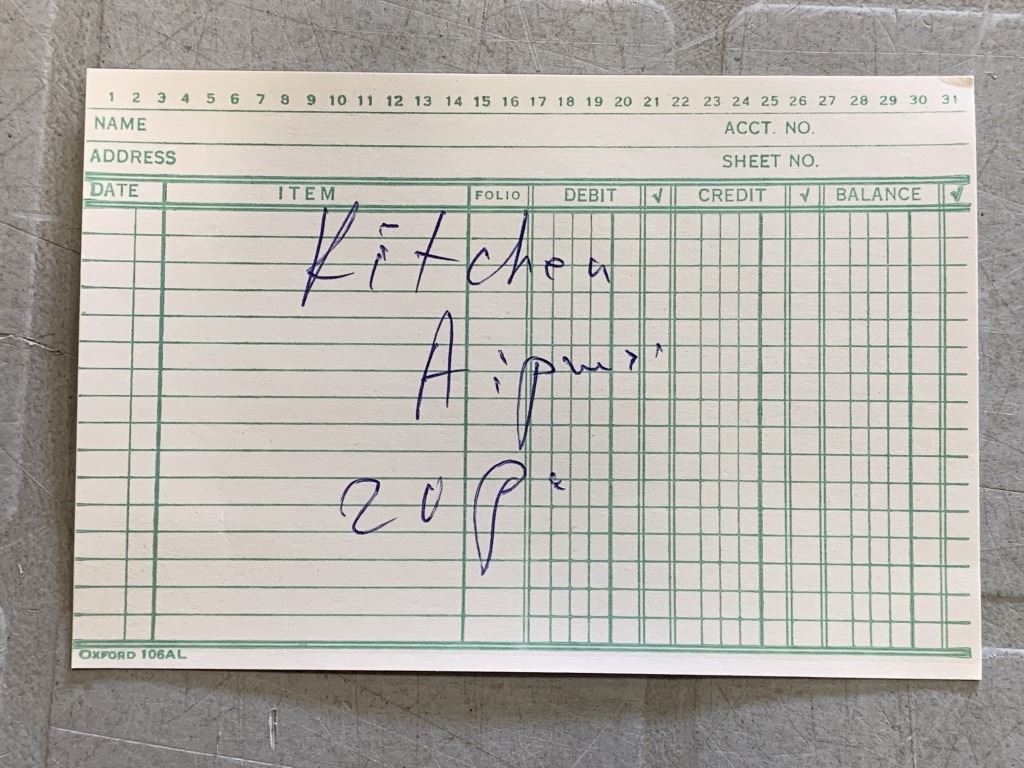 1 2 3 4 5 6 7 8 9 10 11 12 13 14 15 16 17 18 19 20 21 22 23 24 25 26 27 28 29 30 31
NAME ACCT. NO.
ADDRESS SHEET NO.
DATE ITEM FOLIO DEBIT √ CREDIT √ BALANCE √
Kitchen
20 P
OXFORD 106AL